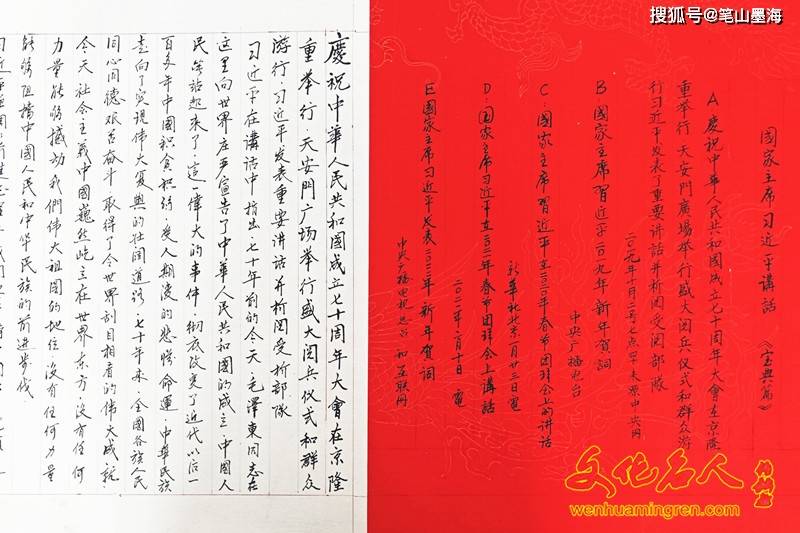 搜狐号@笔山墨海
國家主席习近平講話 《宝典篇》
A 慶祝中华人民共和國成立七十周年大會在京隆
重举行 天安門廣場举行盛大阅兵仪式和群众游
行习近平发表了重要讲话并析阅受阅部隊
二〇一九年十月 号七点早来源中央网
B:國家主席習近平二〇一九年新年賀詞
中央广播电台
C:國家主席習近平在 年春节团拜会上的讲话
新华社北京一月廿二日電
D:国家主席习近平在 年春节团拜会上講話
二〇二二年一月十日 電
E 國家主席习近平发表二〇二二年 新年賀詞
中央广播电视总台 和互联网
慶祝中華人民共和國成立七十周年大會在京隆
重举行·天安門广场举行盛大阅兵仪式和群众
游行·习近平发表重要讲话并析阅受析部隊
习近平在講話中指出 七十年前的今天 毛澤東同志在
这里向世界庄严宣告了中華人民共和國的成立 中國人
民從站起来了 這一偉大的事件 彻底改变了近代以后一
百多年中国积贫积弱 受人欺凌的悲惨命運 中華民族
走向了实現伟大复興的壮阔道路 七十年来 全國各族人民
同心同德 艰苦奋斗 取得了令世界刮目相看的偉大成就
今天 社会主義中國巍然屹立在世界东方 没有任何
力量能够撼动我們偉大祖國的地位 没有任何力量
能够阻擋中國人民和中华民族的前进步伐
文化名人
wenhuamingren.com